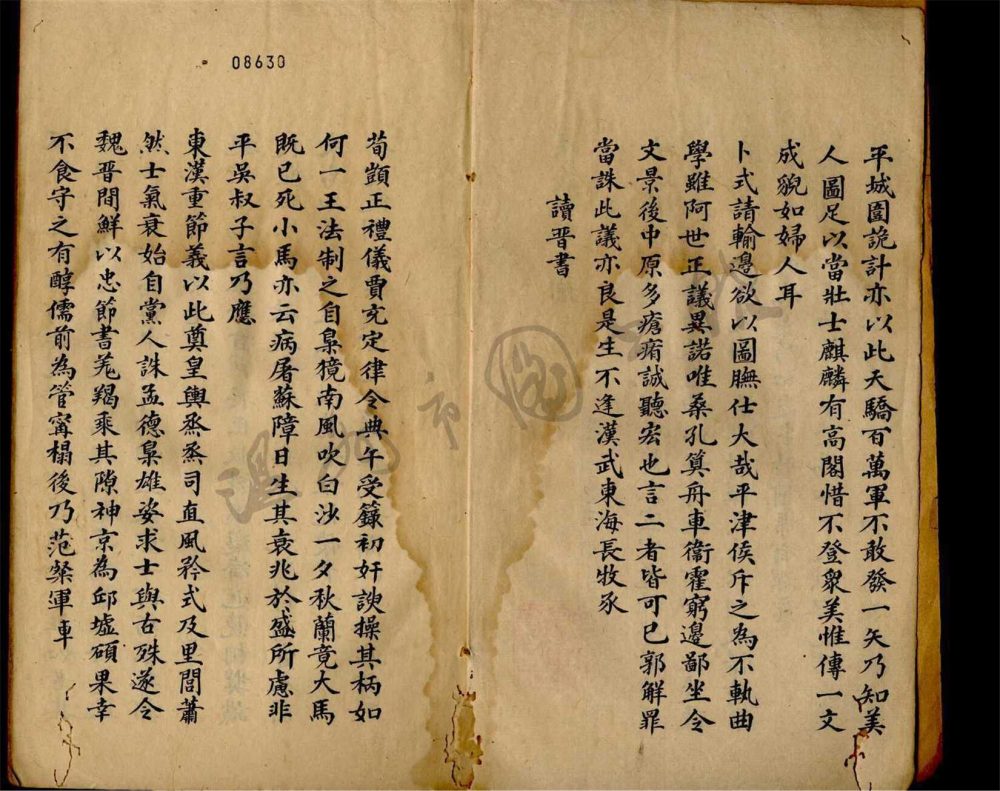 08630
平城圍詭計亦以此天驕百萬軍不敢發一矢乃知美
人圖足以當壯士麒麟有高閣惜不登眾美惟傳一文
成貌如婦人耳
卜式請輸邊欲以圖膴仕大哉平津侯斥之為不軌曲
學雖阿世正議異諾唯桑孔筭舟車衛霍窮邊鄙坐令
文景後中原多瘡痏誠聽宏也言二者皆可已郭解罪
當誅此議亦良是生不逢漢武東海長牧豕
讀晋書
荀顗正禮儀賈充定律令典午受籙初奸諛操其柄如
何一王法制之自梟獍南風吹白沙一夕秋蘭竟大馬
既已死小馬亦云病屠蘇障日生其衰兆於盛所慮非
平吳叔子言乃應
東漢重節義以此奠皇輿烝烝司直風矜式及里閭蕭
然士氣衰始自黨人誅孟德梟雄姿求士與古殊遂令
魏晋間鮮以忠節書羗羯乘其隙神京為邱墟碩果幸
不食守之有醇儒前為管寗榻後乃范粲軍車